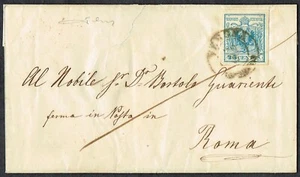 Al Nobile Sr. Dr. Bortolo Guarienti
ferma in Posta in
Roma